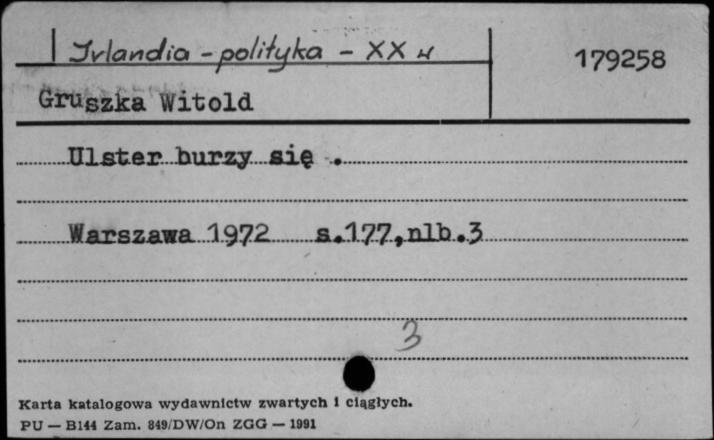 Irlandia - polityka - XX w
179258
Gruszka Witold
Ulster burzy się .
Warszawa 1972 s.177,nlb.3
3
Karta katalogowa wydawnictw zwartych i ciągłych.
PU — B144 Zam. 849/DW/On ZGG — 1991